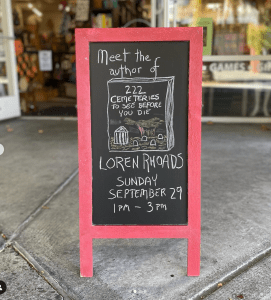 Meet the
author of
222
CEMETERIES
TO SEE BEFORE
YOU DIE
LOREN RHOADS
SUNDAY
SEPTEMBER 29
1PM - 3PM
GAMES